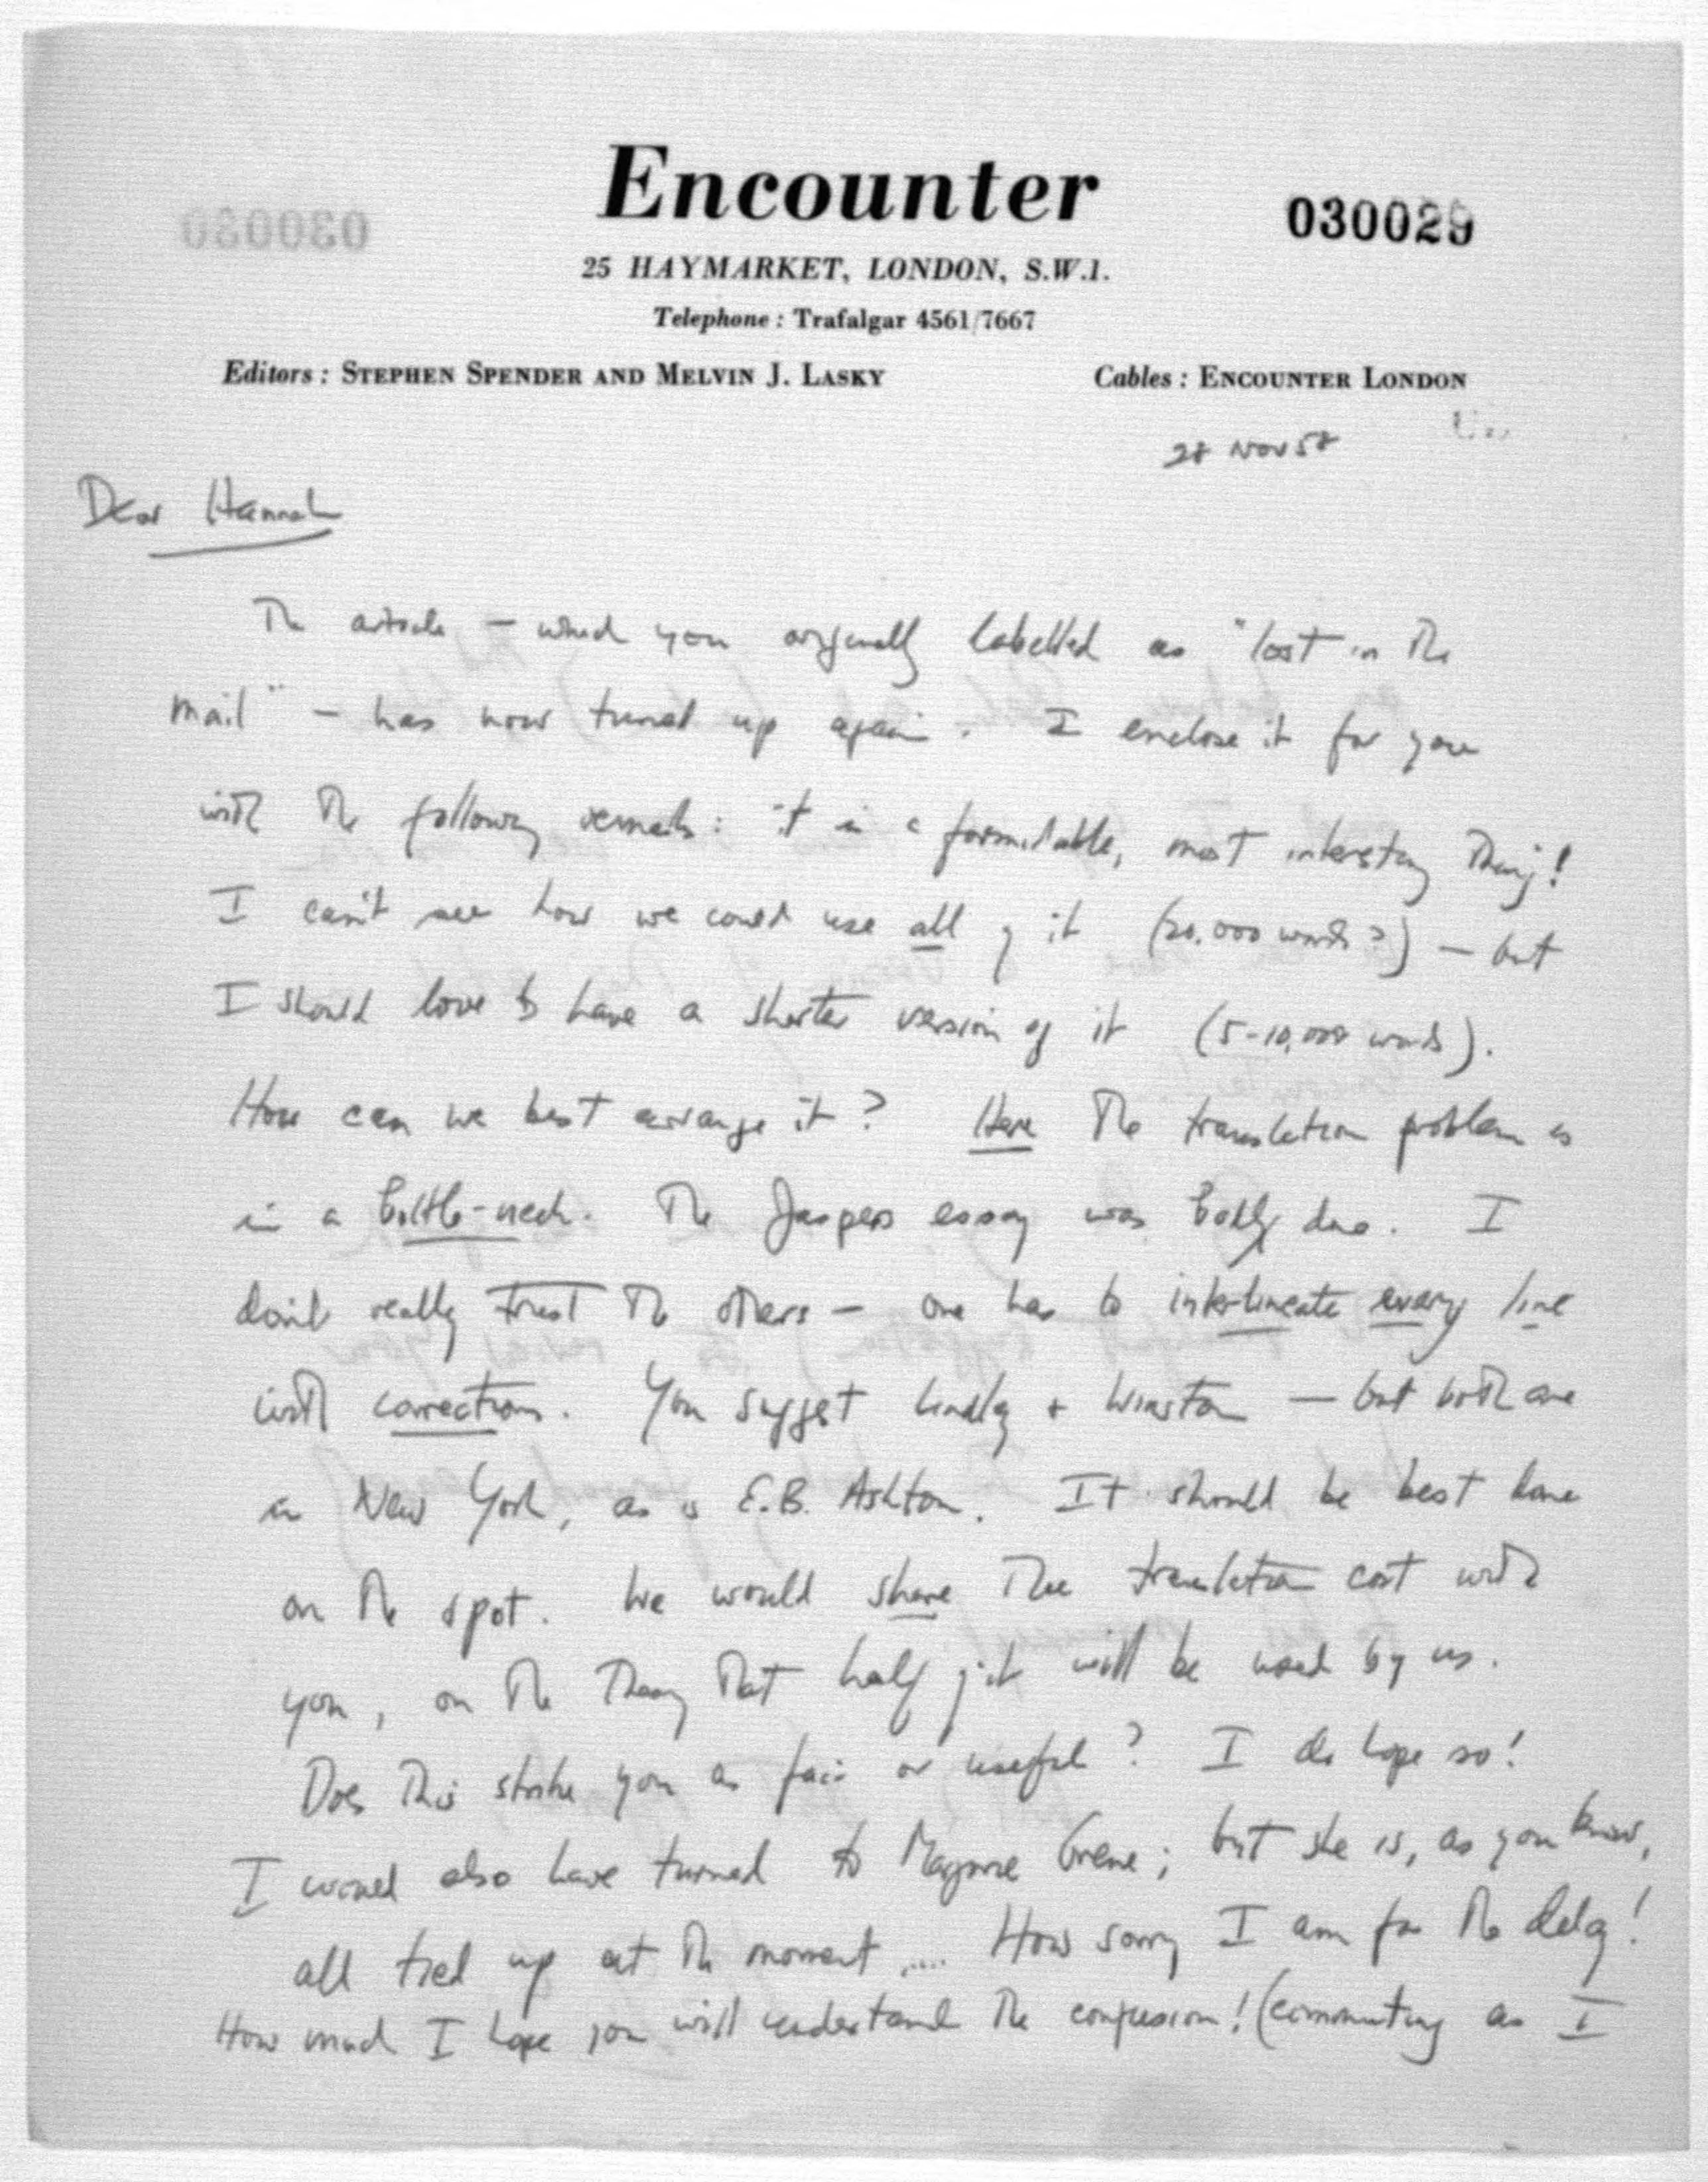 Encounter
030029
030030
25 HAYMARKET, LONDON, S.W.1.
Telephone : Trafalgar 4561/7667
Editors : STEPHEN SPENDER AND MELVIN J. LASKY
Cables : ENCOUNTER LONDON
28 Nov 58
Dear Hannah
The article – which you originally labelled as "lost in the
mail" – has now turned up again. I enclose it for you
with the following remarks: it is a formidable, most interesting thing!
I can't see how we could use all of it (20,000 words?) – but
I should love to have a shorter version of it (5-10,000 words).
How can we best arrange it? Here the translation problem is
in a bottle-neck. The Jaspers essay was badly done. I
don't really trust the others – one has to interlineate every line
with corrections. You suggest Lindley + Winston – but both are
in New York, as is E.B. Ashton. It should be best done
on the spot. We would share the translation cost with
you, on the theory that half of it will be used by us.
Does this strike you as fair or useful? I do hope so!
I would also have turned to Marjorie Grene; but she is, as you know,
all tied up at the moment .... How sorry I am for the delay!
How much I hope you will understand the confusion! (commuting as I